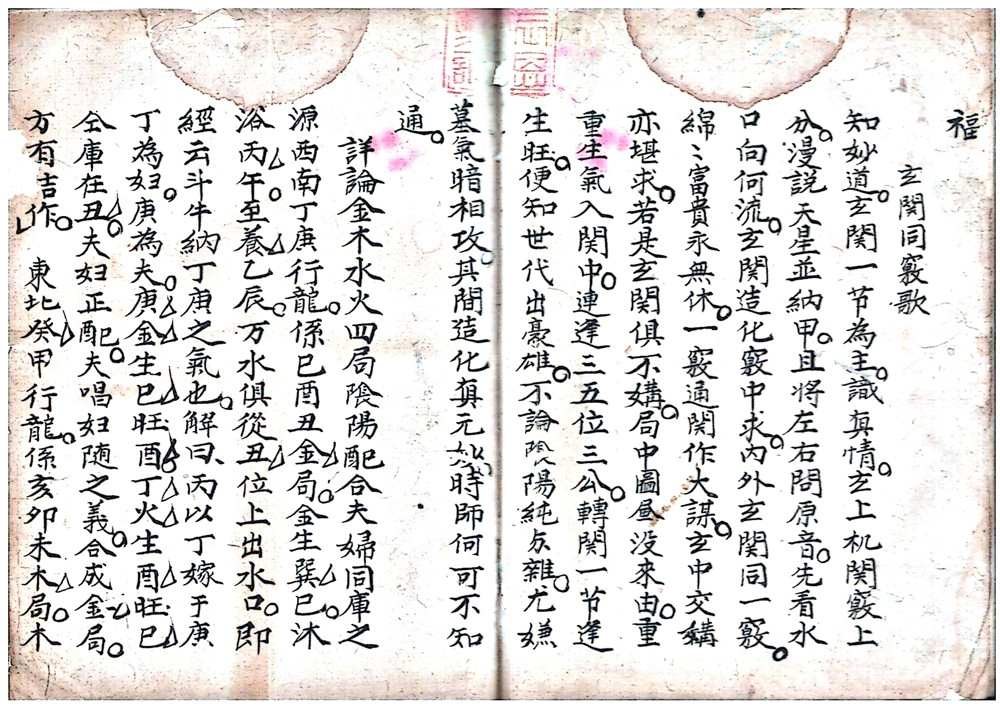 福
玄関同竅歌
知妙道。玄関一节為主。識真情。玄上机関竅上
分。漫説天星並納甲。且将左右問原音。先看水
口向何流。玄関造化竅中求。内外玄関同一竅。
綿〻富貴永無休。一竅通関作大謀。玄中交媾
亦堪求。若是玄関俱不媾。局中圖没来由。重
重生氣入関中。連逢三五位三公。轉関一节逢
生旺。便知世代出豪雄。不論陰陽純与雜。尤嫌
墓氣暗相攻。其間造化真元妙。時師何可不知
通。
詳論金木水火四局陰陽配合夫婦同庫之
源西南丁庚行龍。係巳酉丑金局。金生巽巳。沐
浴丙午。至養乙辰。万水俱從丑位上出水口。即
經云斗牛納丁庚之氣也。解曰、丙以丁嫁于庚
丁為妇。庚為夫。庚金生巳旺酉。丁火生酉旺巳
仝庫在丑。夫妇正配。夫唱妇随之義。合成金局。
方有吉作。 東北癸甲行龍。係亥卯未木局。木